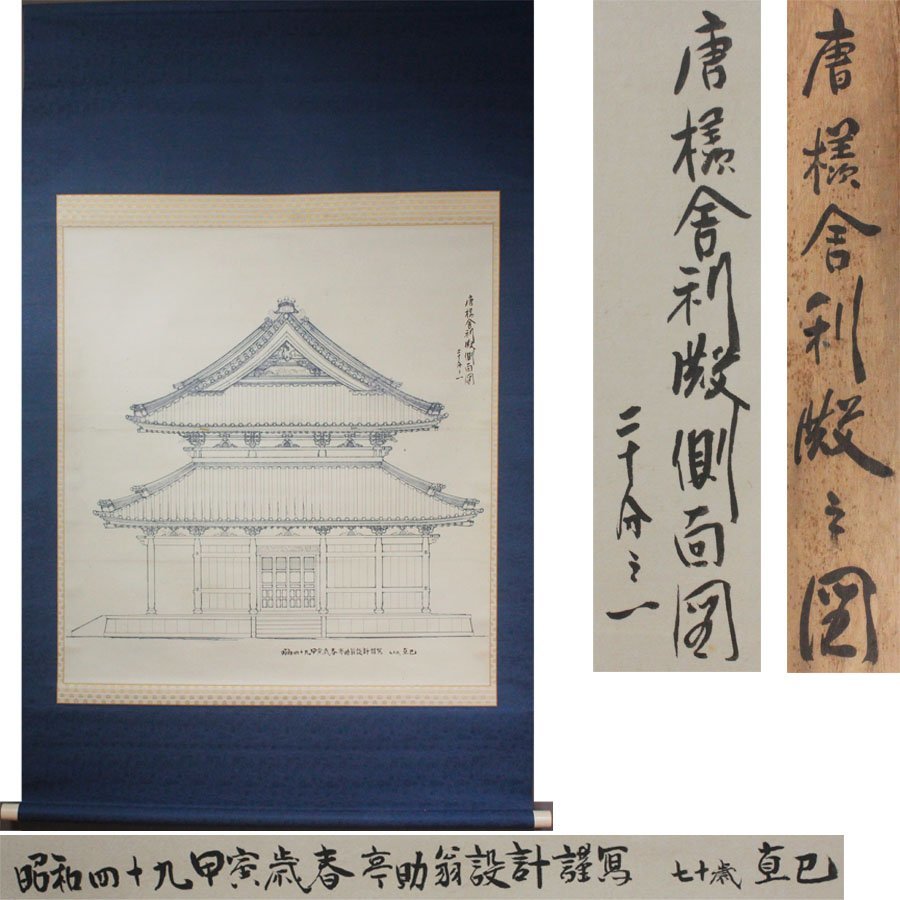 唐様舎利殿側面図
二十分之一
昭和四十九甲寅歳春亭助翁設計謹写 七十歳 直巳
唐様舎利殿側面図
二十分之一
唐様舎利殿之図
昭和四十九甲寅歳春亭助翁設計謹写 七十歳 直巳